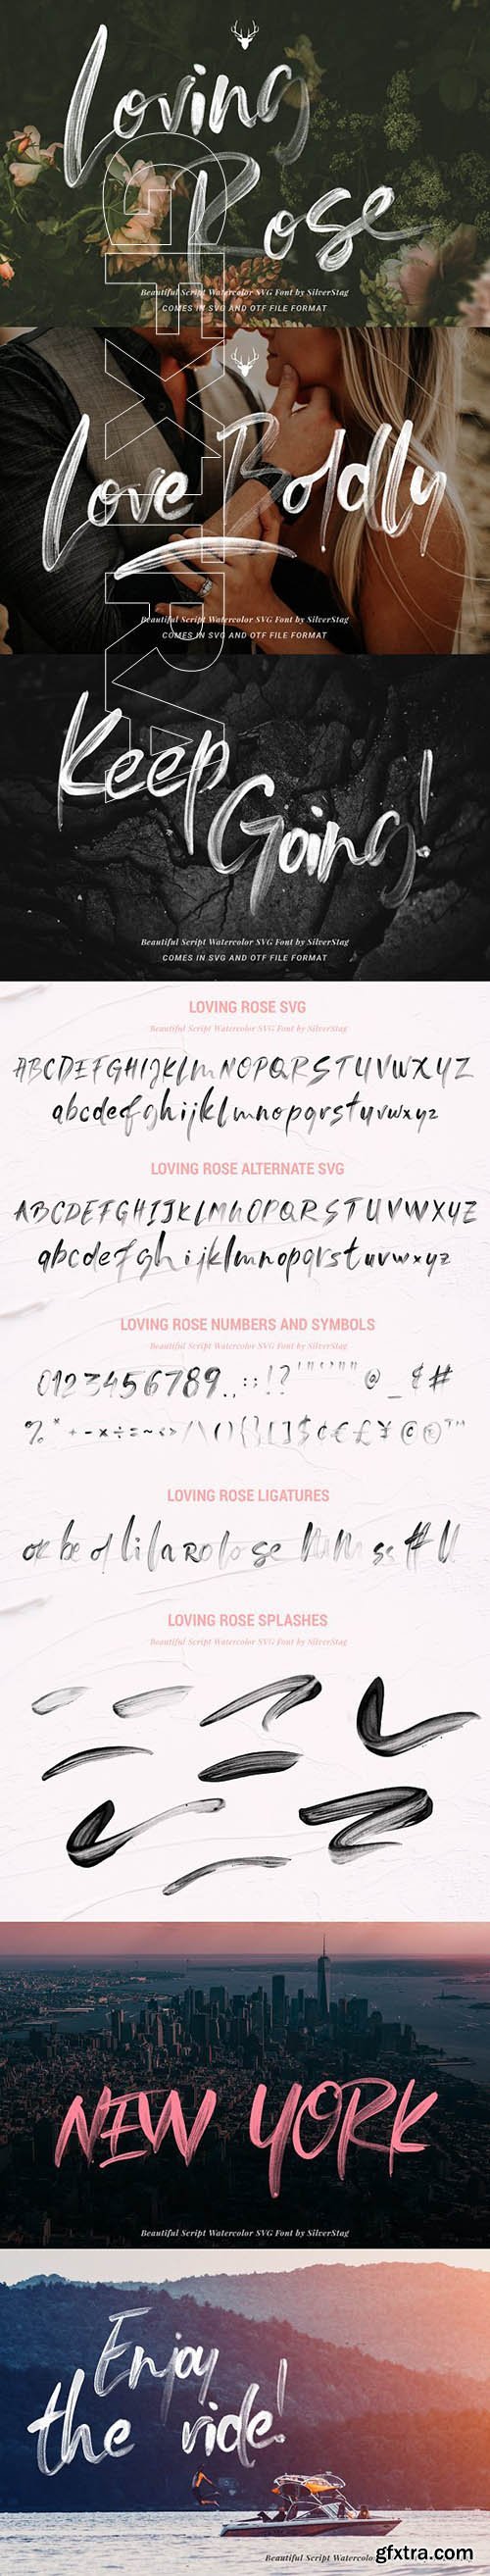 Loving
Rose
Beautiful Script Watercolor SVG Font by SilverStag
COMES IN SVG AND OTF FILE FORMAT
GFXTRA
Love Boldly
Beautiful Script Watercolor SVG Font by SilverStag
COMES IN SVG AND OTF FILE FORMAT
Keep
Going!
Beautiful Script Watercolor SVG Font by SilverStag
COMES IN SVG AND OTF FILE FORMAT
LOVING ROSE SVG
Beautiful Script Watercolor SVG Font by SilverStag
ABCDEFGHIJKLMNOPQRSTUVWXYZ
abcdefghijklmnopqrstuvwxyz
LOVING ROSE ALTERNATE SVG
ABCDEFGHIJKLMNOPQRSTUVWXYZ
abcdefghijklmnopqrstuvwxyz
LOVING ROSE NUMBERS AND SYMBOLS
Beautiful Script Watercolor SVG Font by SilverStag
0123456789.,:;!? @ _ & #
% * + - × ÷ = ~ < > / \ ( ) { } [ ] $ ¢ € £ ¥ © ® ™
LOVING ROSE LIGATURES
LOVING ROSE SPLASHES
Beautiful Script Watercolor SVG Font by SilverStag
NEW YORK
Beautiful Script Watercolor SVG Font by SilverStag
Enjoy
the ride!
Beautiful Script Watercolo
gfxtra.com